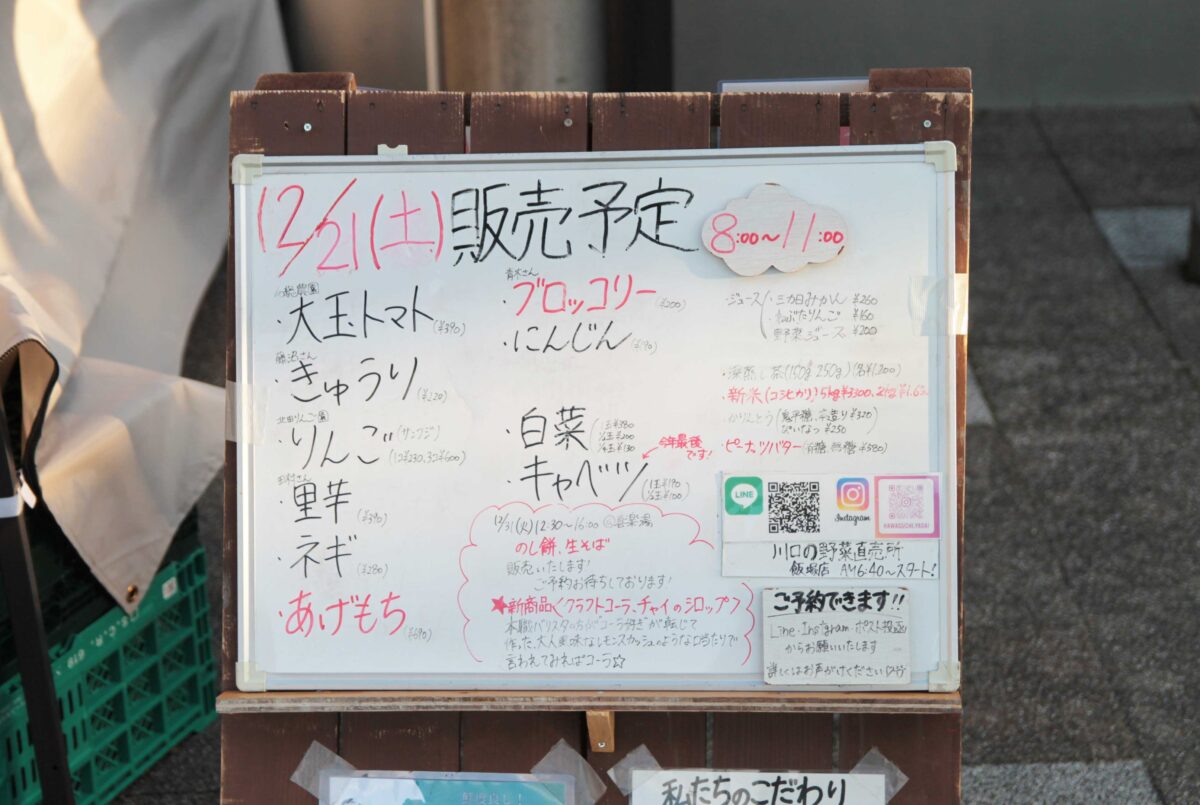 12/21(土)販売予定
8:00〜11:00
・大玉トマト(¥390)
藤沼さん
・きゅうり(¥220)
北田りんご園
・りんご(サンフジ)
(1コ¥230,3コ¥600)
田村さん
・里芋(¥390)
・ネギ(¥280)
あげもち(¥690)
青木さん
・ブロッコリー(¥200)
・にんじん(¥190)
・白菜
1玉¥380
1/2玉¥200
1/4玉¥130
今年最後です!
キャベツ
(1玉¥190
1/2玉¥100)
12/31(火)12:30〜16:00@喜楽湯
のし餅、生そば
販売いたします!
ご予約お待ちしております!
★新商品<クラフトコーラ、チャイのシロップ>
本職バリスタたちがコーラ好きが転じて
作った、大人風味なレモンスカッシュのような口当たりで
言われてみればコーラ☆
ジュース
・三ヶ日みかん ¥260
・ねぶたりんご ¥160
野菜ジュース ¥200
・深蒸し茶(150g,250g)(各¥1,200)
・新米(コシヒカリ)5kg¥3300、
・かりんとう
¥320
¥250
・ピーナッツバター(有糖、無糖¥580)
LINE
Instagram
KAWAGUCHI.YASAI
川口の野菜直売所
飯塚店 AM6:40〜スタート!
ご予約できます!!
Line・Instagram・ポスト投函
からお願いいたします
詳しくはお声がけください
私たちのこだわり